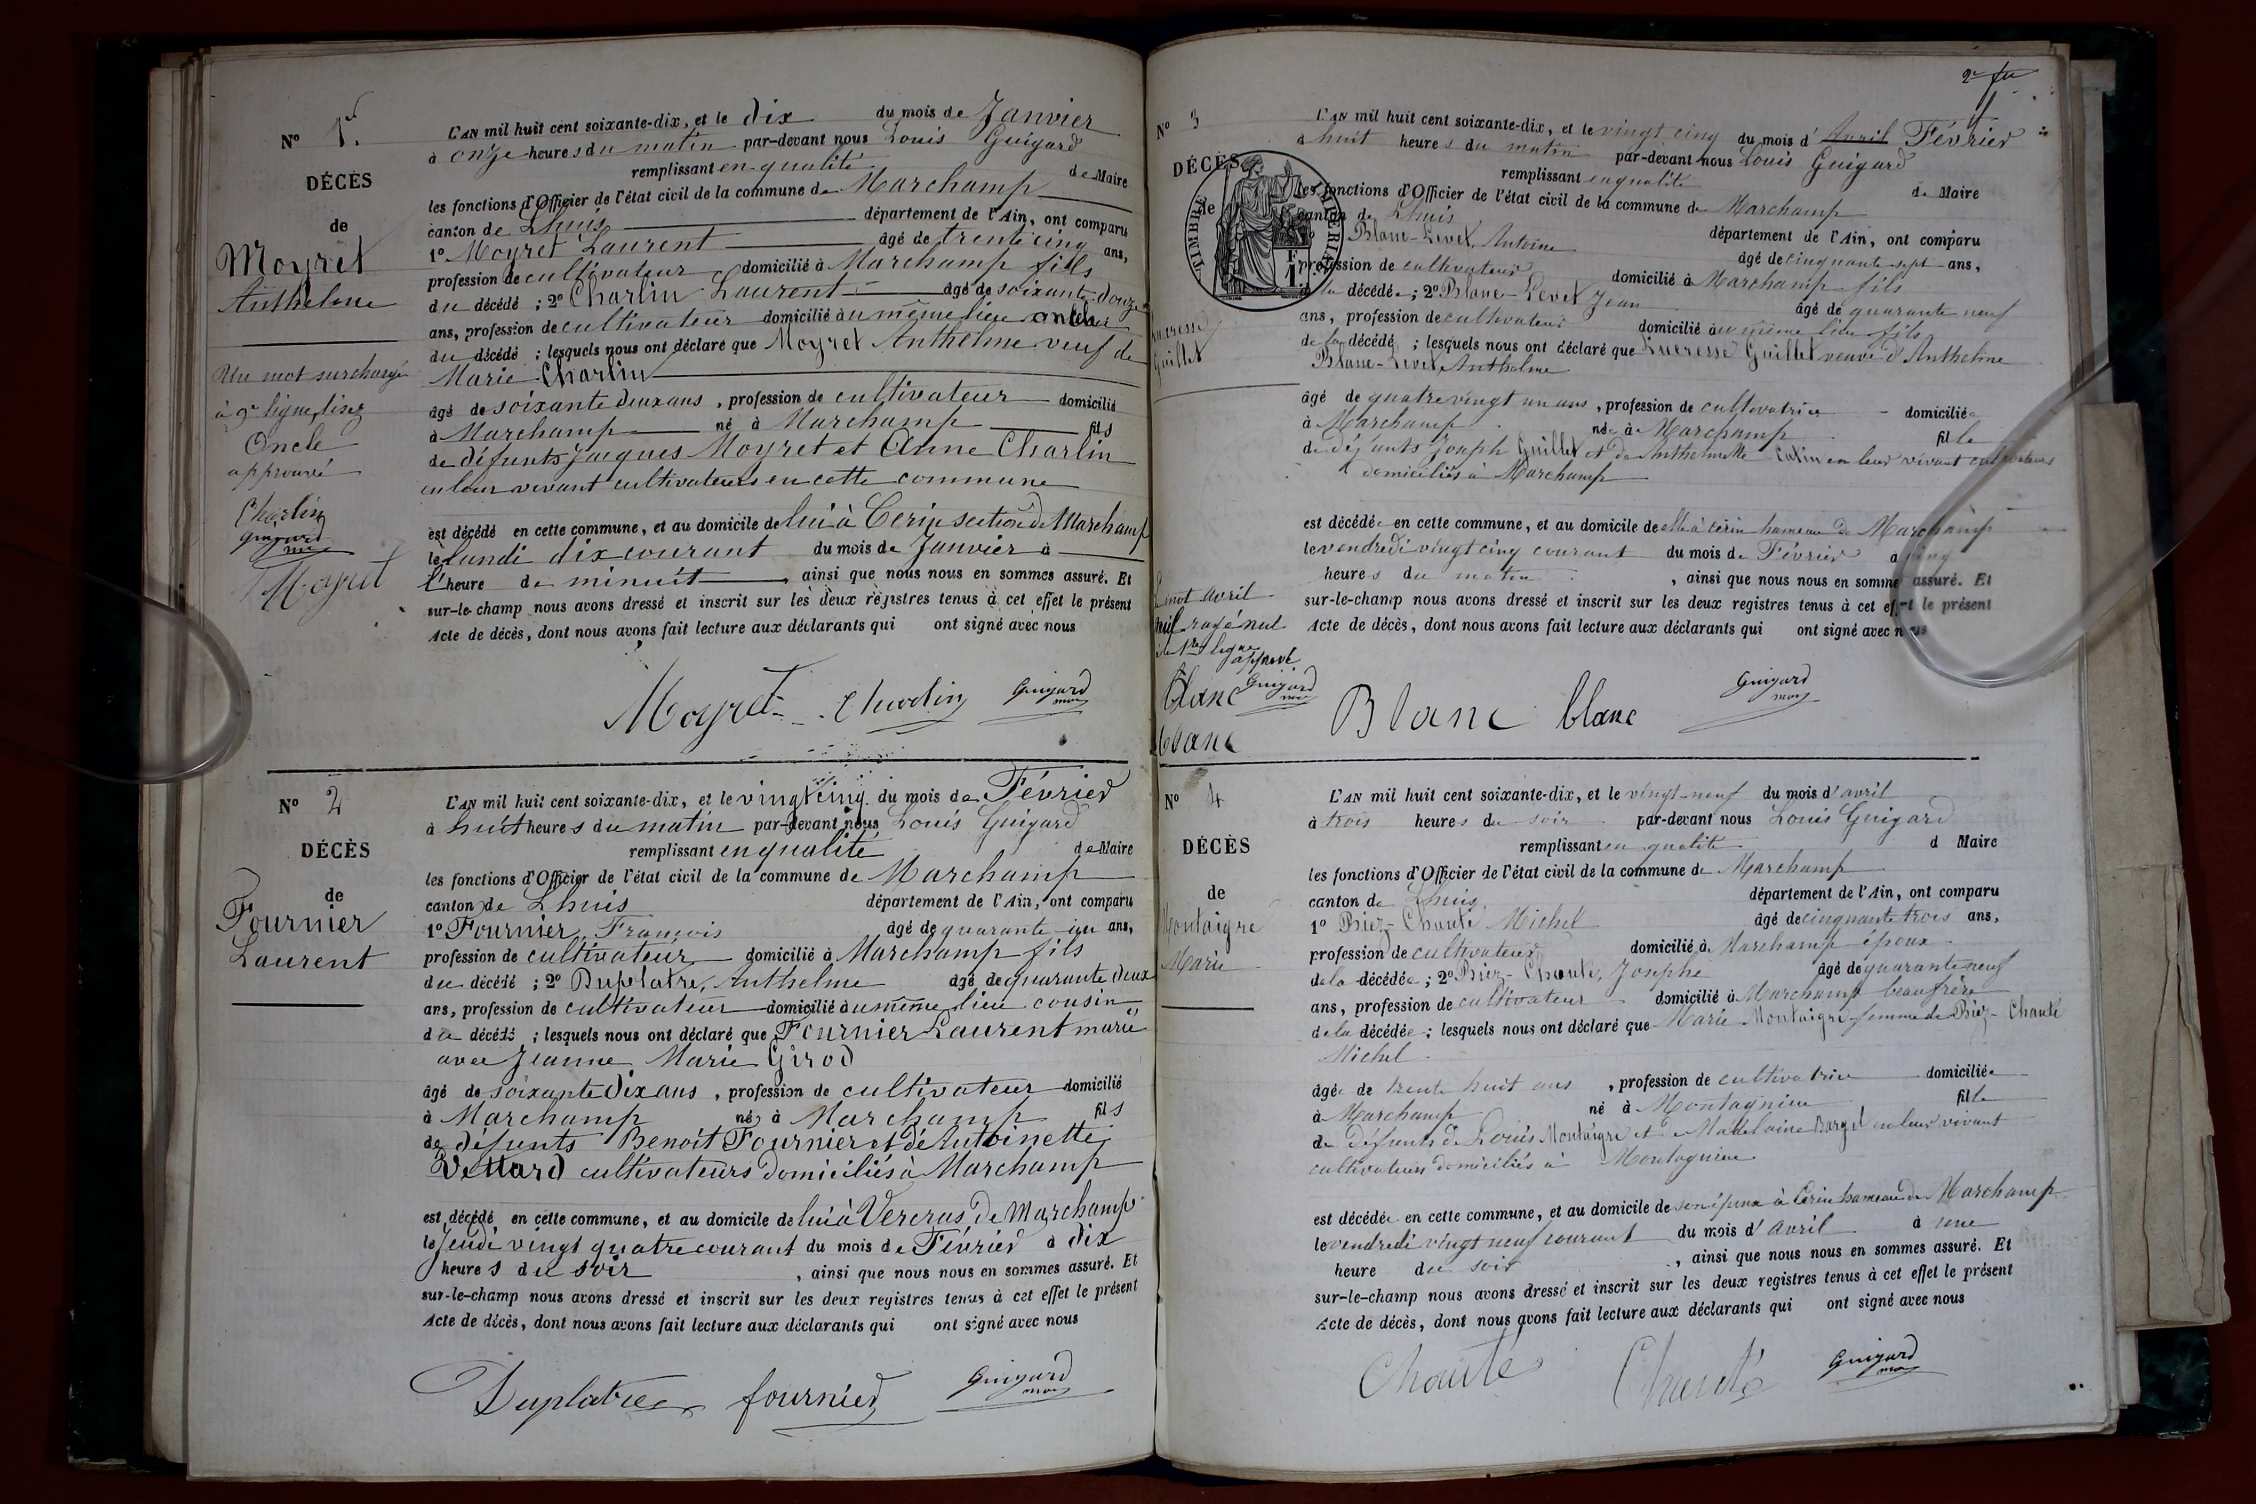 N° 1er
DÉCÈS
de
Moyret
Anthelme
Un mot surchargé
à 9e ligne lisez
Oncle
approuvé
Charlin
Guigard
Moyret
L'AN mil huit cent soixante-dix, et le dix du mois de Janvier
à onze heures du matin par-devant nous Louis Guigard
remplissant en qualité de Maire
les fonctions d'Officier de l'état civil de la commune de Marchamp
canton de Lhuis département de l'Ain, ont comparu
1° Moyret Laurent âgé de trente cinq ans,
profession de cultivateur domicilié à Marchamp fils
du décédé ; 2° Charlin Laurent âgé de soixante douze
ans, profession de cultivateur domicilié au même lieu oncle
du décédé ; lesquels nous ont déclaré que Moyret Anthelme veuf de
Marie Charlin
âgé de soixante deux ans, profession de cultivateur domicilié
à Marchamp né à Marchamp fils
de défunts Jacques Moyret et Anne Charlin
en leur vivant cultivateurs en cette commune
est décédé en cette commune, et au domicile de lui à Cerin section de Marchamp
le lundi dix courant du mois de Janvier à
l'heure de minuit, ainsi que nous nous en sommes assuré. Et
sur-le-champ nous avons dressé et inscrit sur les deux registres tenus à cet effet le présent
Acte de décès, dont nous avons fait lecture aux déclarants qui ont signé avec nous
Moyret Charlin Guigard
N° 2
DÉCÈS
de
Fournier
Laurent
L'AN mil huit cent soixante-dix, et le vingt cinq du mois de Février
à huit heures du matin par-devant nous Louis Guigard
remplissant en qualité de Maire
les fonctions d'Officier de l'état civil de la commune de Marchamp
canton de Lhuis département de l'Ain, ont comparu
1° Fournier, François âgé de quarante un ans,
profession de cultivateur domicilié à Marchamp fils
du décédé ; 2° Duplatre, Anthelme âgé de quarante deux
ans, profession de cultivateur domicilié au même lieu cousin
du décédé ; lesquels nous ont déclaré que Fournier Laurent marié
avec Jeanne Marie Girod
âgé de soixante dix ans, profession de cultivateur domicilié
à Marchamp né à Marchamp fils
de défunts Benoit Fournier et de Antoinette
cultivateurs domiciliés à Marchamp
est décédé en cette commune, et au domicile de lui à Vercras de Marchamp
le Jeudi vingt quatre courant du mois de Février à dix
heures du soir, ainsi que nous nous en sommes assuré. Et
sur-le-champ nous avons dressé et inscrit sur les deux registres tenus à cet effet le présent
Acte de décès, dont nous avons fait lecture aux déclarants qui ont signé avec nous
Duplatre fournier Guigard
2e
N° 3
DÉCÈS
de
TIMBRE IMPÉRIAL
Lucresse
Guillet
L'AN mil huit cent soixante-dix, et le vingt cinq du mois d'Avril Février
à huit heures du matin par-devant nous Louis Guigard
remplissant en qualité de Maire
les fonctions d'Officier de l'état civil de la commune de Marchamp
canton de Lhuis département de l'Ain, ont comparu
Blanc-Levet, Antoine âgé de cinquante sept ans,
profession de cultivateur domicilié à Marchamp fils
de la décédée ; 2° Blanc-Levet Jean âgé de quarante neuf
ans, profession de cultivateur domicilié au même lieu fils
de la décédé ; lesquels nous ont déclaré que Lucresse Guillet veuve d'Anthelme
Blanc-Levet Anthelme
âgé de quatre vingt un ans, profession de cultivatrice domiciliée
à Marchamp née à Marchamp fille
de défunts Joseph Guillet et de Anthelmette en leur vivant cultivateurs
domiciliés à Marchamp
est décédée en cette commune, et au domicile de elle à Cerin hameau de Marchamp
le vendredi vingt cinq courant du mois de Février à cinq
heures du matin, ainsi que nous nous en sommes assuré. Et
sur-le-champ nous avons dressé et inscrit sur les deux registres tenus à cet effet le présent
Acte de décès, dont nous avons fait lecture aux déclarants qui ont signé avec nous
mot avril
rayé nul
1re ligne
approuvé
Guigard
Blanc
blanc
Blanc blanc Guigard
N° 4
DÉCÈS
de
Montaigre
Marie
L'AN mil huit cent soixante-dix, et le vingt-neuf du mois d'avril
à trois heures du soir par-devant nous Louis Guigard
remplissant en qualité d Maire
les fonctions d'Officier de l'état civil de la commune de Marchamp
canton de Lhuis département de l'Ain, ont comparu
1° Biez-Chanté Michel âgé de cinquante trois ans,
profession de cultivateur domicilié à Marchamp époux
de la décédée ; 2° Biez-Chanté, Josephe âgé de quarante neuf
ans, profession de cultivateur domicilié à Marchamp beaufrère
de la décédée ; lesquels nous ont déclaré que Marie Montaigre femme de Biez-Chanté
Michel
âgée de trente huit ans, profession de cultivatrice domiciliée
à Marchamp né à Montagnieu fille
de défunts de Louis Montaigre et de Madelaine en leur vivant
cultivateurs domiciliés à Montagnieu
est décédée en cette commune, et au domicile de son époux à Cerin hameau de Marchamp
le vendredi vingt neuf courant du mois d'avril à une
heure du soir, ainsi que nous nous en sommes assuré. Et
sur-le-champ nous avons dressé et inscrit sur les deux registres tenus à cet effet le présent
Acte de décès, dont nous avons fait lecture aux déclarants qui ont signé avec nous
Chanté Chanté Guigard